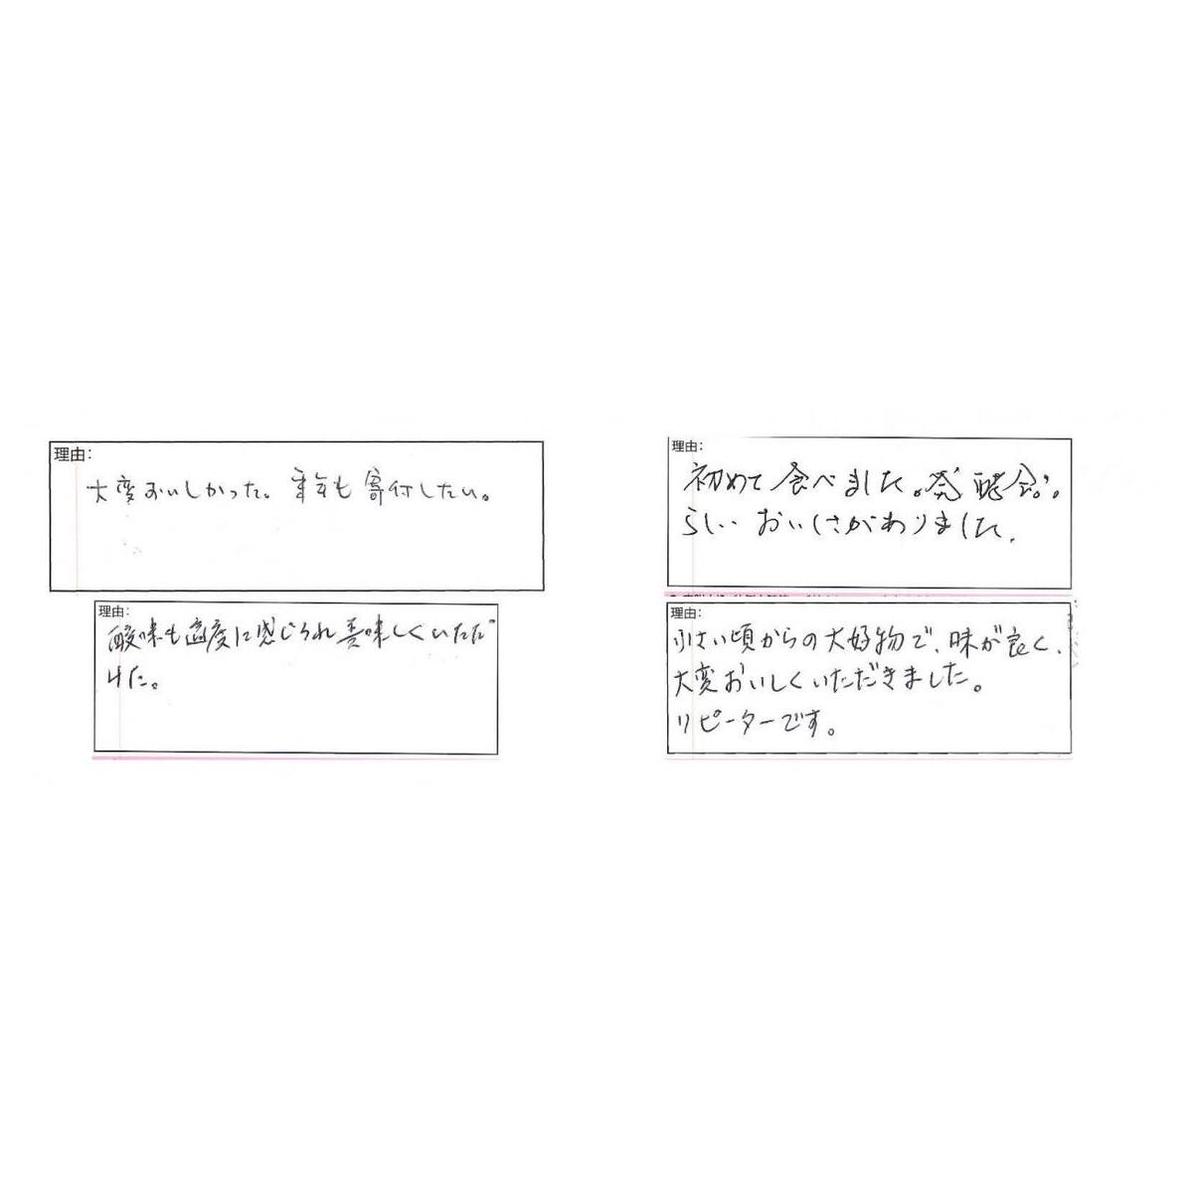 理由:
大変おいしかった。来年も寄付したい。
理由:
酸味も適度に感じられ美味しくいただ
けた。
理由:
初めて食べました。発酵食
らしい おいしさがありました.
理由:
小さい頃からの大好物で、味が良く、
大変おいしくいただきました。
リピーターです。